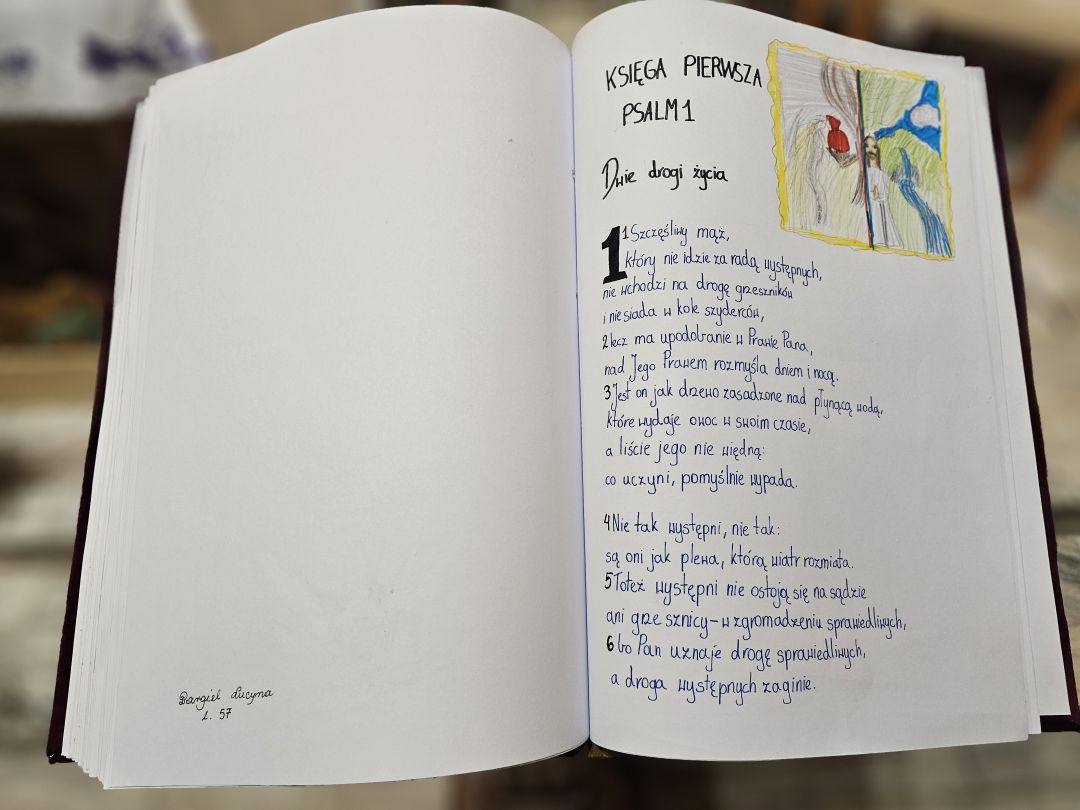 Bargiel Lucyna
L. 57
KSIĘGA PIERWSZA
PSALM 1
Dwie drogi życia
1 1 Szczęśliwy mąż,
który nie idzie za radą występnych,
nie wchodzi na drogę grzeszników
i nie siada w kole szyderców,
2 lecz ma upodobanie w Prawie Pana,
nad Jego Prawem rozmyśla dniem i nocą.
3 Jest on jak drzewo zasadzone nad płynącą wodą,
które wydaje owoc w swoim czasie,
a liście jego nie więdną:
co uczyni, pomyślnie wypada.
4 Nie tak występni, nie tak:
są oni jak plewa, którą wiatr rozmiata.
5 Toteż występni nie ostoją się na sądzie
ani grzesznicy – w zgromadzeniu sprawiedliwych,
6 bo Pan uznaje drogę sprawiedliwych,
a droga występnych zaginie.